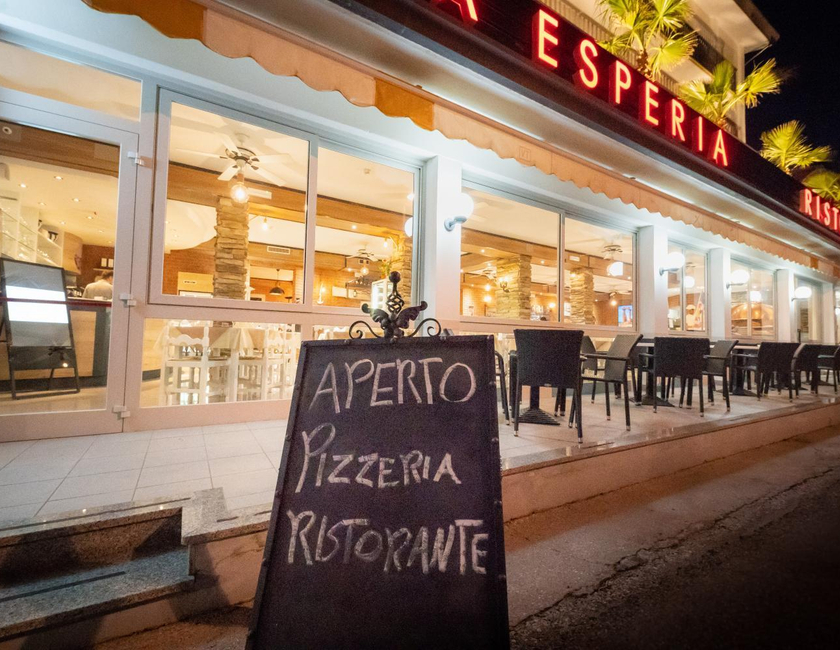 A ESPERIA RIST
APERTO
PIZZERIA
RISTORANTE